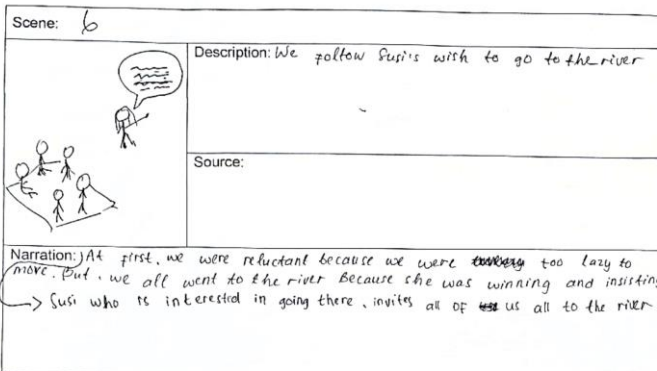 Scene: 6
Description: We follow Susi's wish to go to the river
Source:
Narration: At first, we were reluctant because we were too lazy to
move. But, we all went to the river Because she was winning and insisting
Susi who is interested in going there, invites all of us all to the river